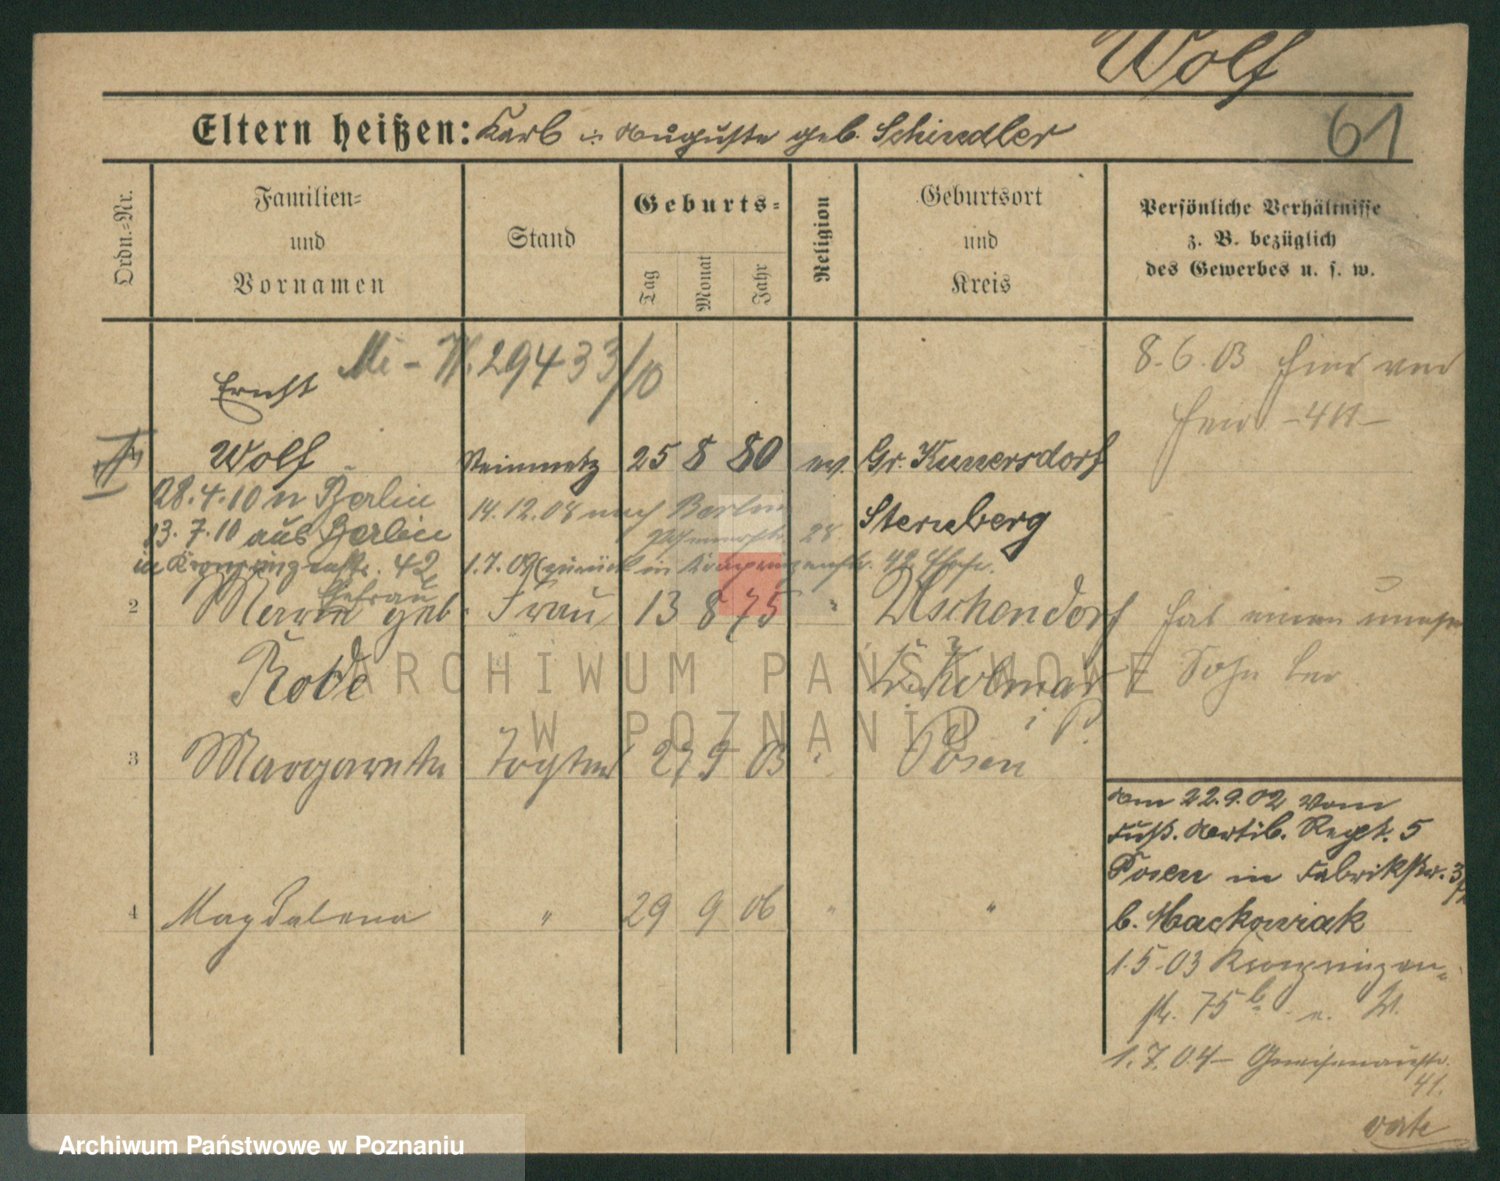 Wolf
61
Eltern heißen: Karl u. Auguste geb. Schindler
Ordn.-Nr.
Familien-
und
Vornamen
Stand
Geburts-
Tag
Monat
Jahr
Religion
Geburtsort
und
Kreis
Persönliche Verhältnisse
z. B. bezüglich
des Gewerbes u. s. w.
29433/10
8.6.03
Ernst
Wolf
Steinmetz 25 8 80 ev. Gr. Kunersdorf
Sternberg
28.4.10 n Berlin
14.12.08 nach Berlin
28.
13.7.10 aus Berlin
in Kronprinzenstr. 42
1.7.09 zurück in Kronprinzenstr. 42
Ehefrau
2 Marie geb. Frau 13 8 75 " Uschendorf
Rode
Kr. Kolmar
i P.
hat einen
Sohn
3 Margarete Tochter 27 9 03 " Posen
4 Magdalena " 29 9 06 " "
Am 22.9.02 vom
Fuß. Artil. Regt. 5
Posen in Fabrikstr. 3
b. Mackowiak
1.5.03 Kronprinzen-
str. 75 b
1.7.04 Gneisenaustr.
41.
verte
ARCHIWUM PAŃSTWOWE
W POZNANIU
Archiwum Państwowe w Poznaniu